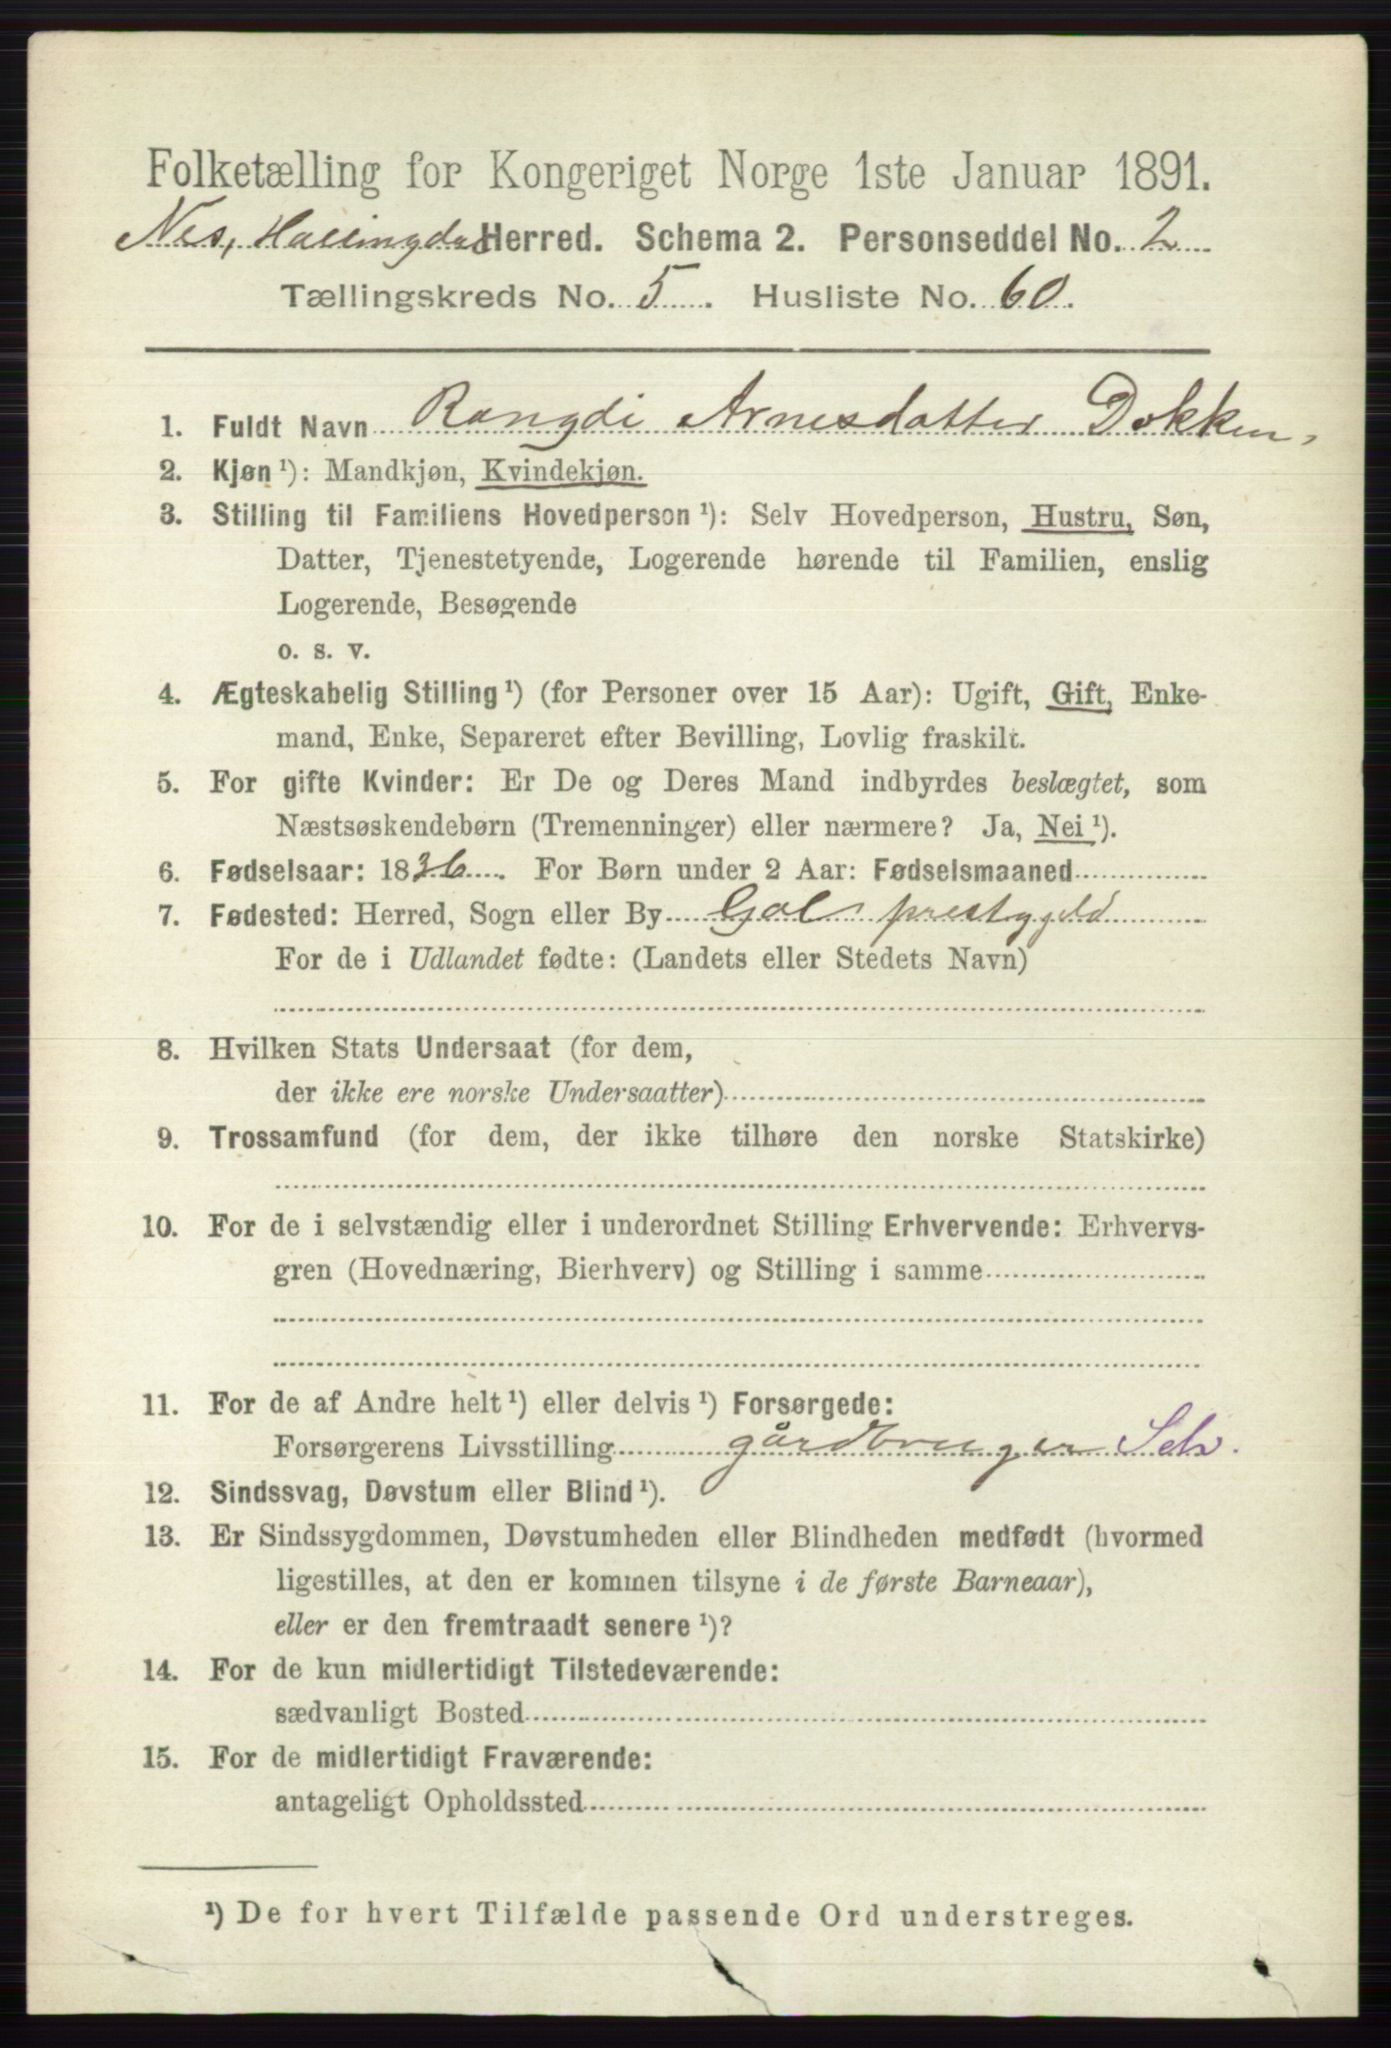 Folketælling for Kongeriget Norge 1ste Januar 1891.
Nes, Hallingdal Herred. Schema 2. Personseddel No. 2
Tællingskreds No. 5. Husliste No. 60.
1. Fuldt Navn Rangdi Arnesdatter Dokken,
2. Kjøn ¹): Mandkjøn, Kvindekjøn.
3. Stilling til Familiens Hovedperson ¹): Selv Hovedperson, Hustru, Søn,
Datter, Tjenestetyende, Logerende hørende til Familien, enslig
Logerende, Besøgende
o. s. v.
4. Ægteskabelig Stilling ¹) (for Personer over 15 Aar): Ugift, Gift, Enke-
mand, Enke, Separeret efter Bevilling, Lovlig fraskilt.
5. For gifte Kvinder: Er De og Deres Mand indbyrdes beslægtet, som
Næstsøskendebørn (Tremenninger) eller nærmere? Ja, Nei ¹).
6. Fødselsaar: 1836. For Børn under 2 Aar: Fødselsmaaned
7. Fødested: Herred, Sogn eller By Gols prestegjeld
For de i Udlandet fødte: (Landets eller Stedets Navn)
8. Hvilken Stats Undersaat (for dem,
der ikke ere norske Undersaatter)
9. Trossamfund (for dem, der ikke tilhøre den norske Statskirke)
10. For de i selvstændig eller i underordnet Stilling Erhvervende: Erhvervs-
gren (Hovednæring, Bierhverv) og Stilling i samme
11. For de af Andre helt ¹) eller delvis ¹) Forsørgede:
Forsørgerens Livsstilling gårdbruger Selv.
12. Sindssvag, Døvstum eller Blind ¹).
13. Er Sindssygdommen, Døvstumheden eller Blindheden medfødt (hvormed
ligestilles, at den er kommen tilsyne i de første Barneaar),
eller er den fremtraadt senere ¹)?
14. For de kun midlertidigt Tilstedeværende:
sædvanligt Bosted
15. For de midlertidigt Fraværende:
antageligt Opholdssted
¹) De for hvert Tilfælde passende Ord understreges.